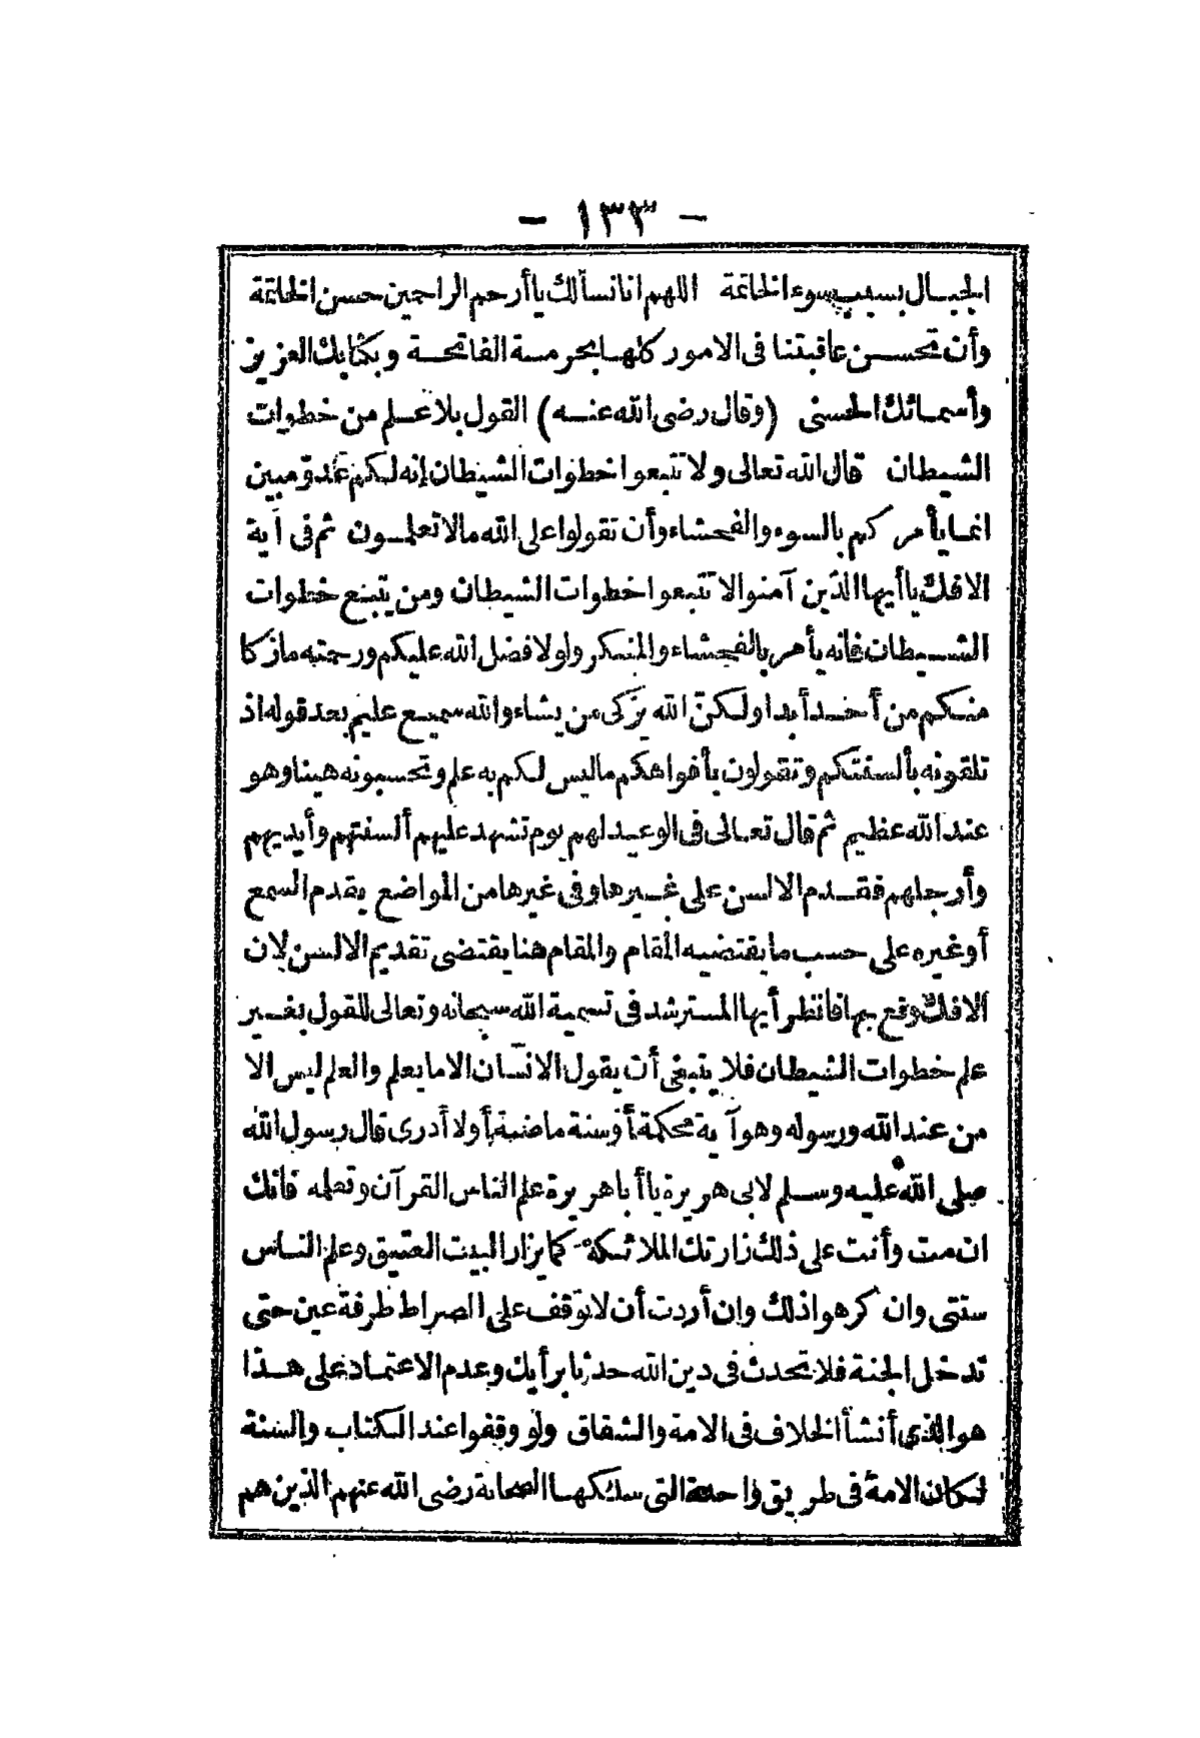 - ١٣٣ -
الجبال بسبب سوء الخاتمة اللهم انا نسألك يا أرحم الراحمين حسن الخاتمة
وأن تحسن عاقبتنا فى الامور كلها بحرمة الفاتحة وبكتابك العزيز
وأسمائك الحسنى (وقال رضى الله عنه) القول بلا علم من خطوات
الشيطان قال الله تعالى ولا تتبعوا خطوات الشيطان إنه لكم عدو مبين
انما يأمركم بالسوء والفحشاء وأن تقولوا على الله مالا تعلمون ثم فى آية
الافك يا أيها الذين آمنوا لا تتبعوا خطوات الشيطان ومن يتبع خطوات
الشيطان فانه يأمر بالفحشاء والمنكر ولولا فضل الله عليكم ورحمته مازكا
منكم من أحد أبدا ولكنّ الله يزكى من يشاء والله سميع عليم بعد قوله اذ
تلقونه بألسنتكم وتقولون بأفواهكم ماليس لكم به علم وتحسبونه هينا وهو
عند الله عظيم ثم قال تعالى فى الوعيد لهم يوم تشهد عليهم ألسنتهم وأيديهم
وأرجلهم فقدم الالسن على غيرها وفى غيرها من المواضع يقدم السمع
أوغيره على حسب ما يقتضيه المقام والمقام هنا يقتضى تقديم الالسن لان
الافك وقع بها فانظر أيها المسترشد فى تسمية الله سبحانه وتعالى للقول بغير
علم خطوات الشيطان فلا ينبغى أن يقول الانسان الا ما يعلم والعلم ليس الا
من عند الله ورسوله وهو آية محكمة أوسنة ماضية أولا أدرى قال رسول الله
صلى الله عليه وسلم لابى هريرة يا أباهريرة علم الناس القرآن وتعلمه فانك
ان مت وأنت على ذلك زارتك الملائكة كما يزار البيت العتيق وعلم الناس
سنتى وان كرهوا ذلك وإن أردت أن لا توقف على الصراط طرفة عين حتى
تدخل الجنة فلا تحدث فى دين الله حدثا برأيك وعدم الاعتماد على هذا
هو الذى أنشأ الخلاف فى الامة والشقاق ولو وقفوا عند الكتاب والسنة
لكان الامة فى طريق واحدة التى سلكها الصحابة رضى الله عنهم الذين هم